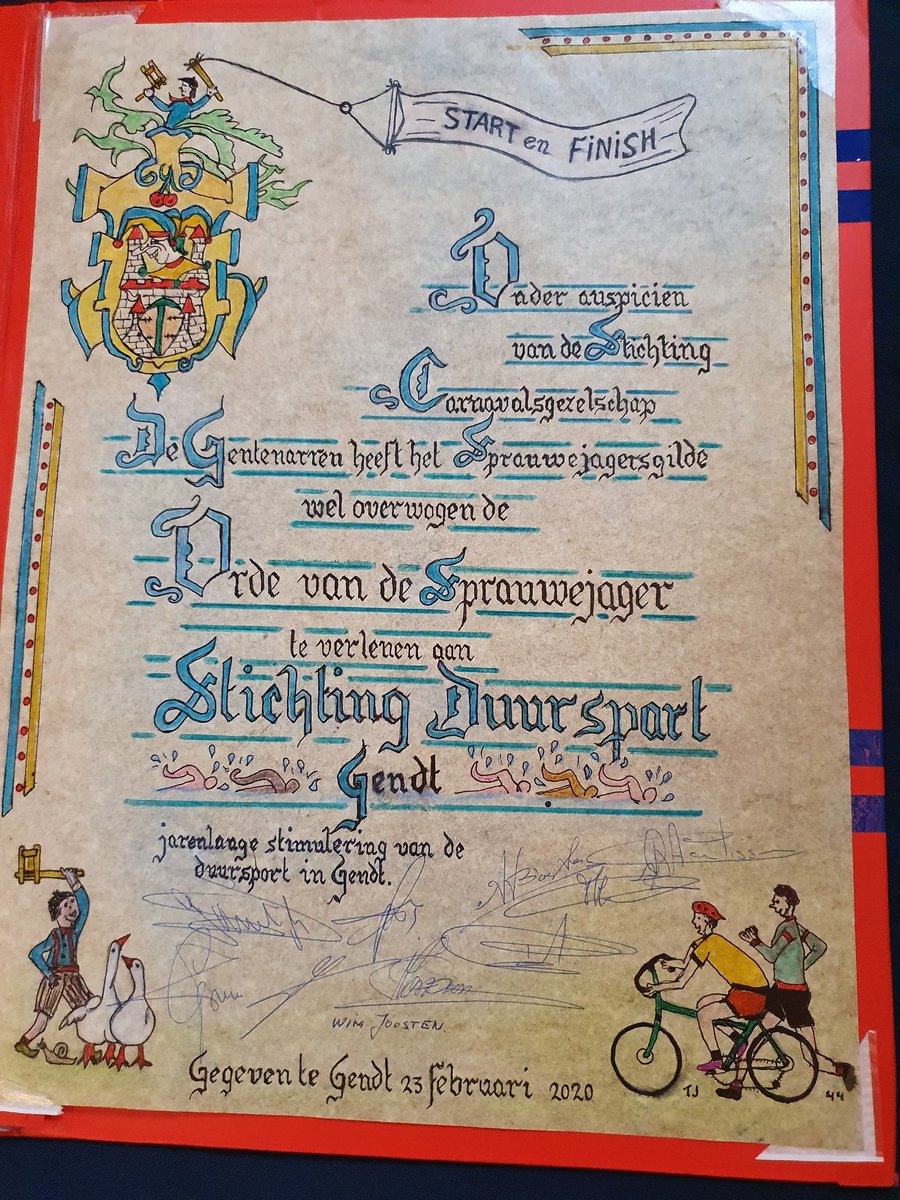 START en FINISH
Onder auspiciën
van de Stichting
Carnavalsgezelschap
De Gentenarren heeft het Sprauwejagersgilde
wel overwogen de
Orde van de Sprauwejager
te verlenen aan
Stichting Duursport
Gendt
jarenlange stimulering van de
duursport in Gendt.
WIM JOOSTEN.
Gegeven te Gendt 23 februari 2020
TJ
44